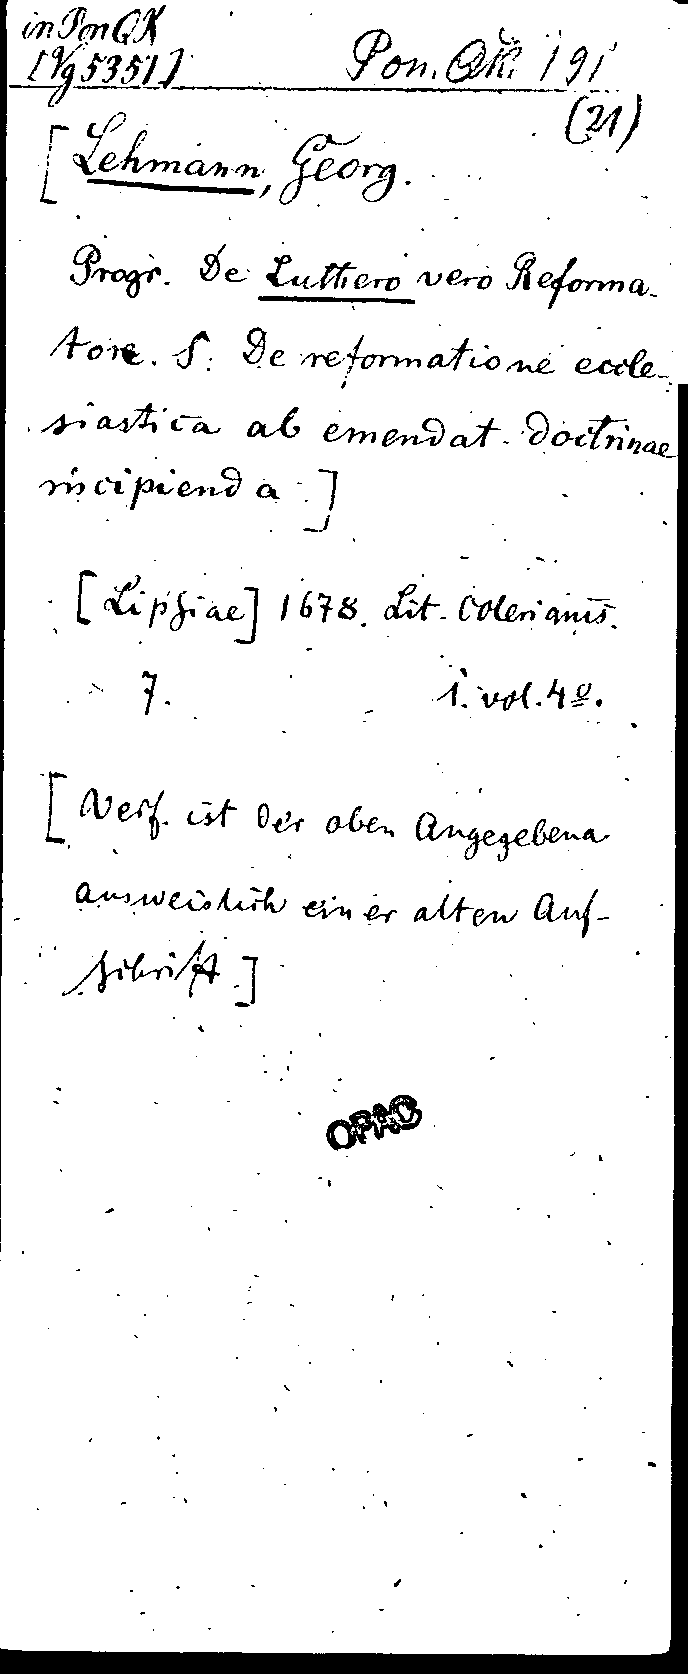 in Pon QK
[Vg 5351]
Pon. QK. 191
(21)
[Lehmann, Georg.
Progr. De Luthero vero Reforma-
tore. S. De reformatione eccle-
siastica ab emendat. doctrinae
incipienda.]
[Lipsiae] 1678. Lit. Colerianis.
7. 1. vol. 4º.
[Verf. ist der oben Angegebene
ausweislich einer alten Auf-
schrift.]
OPAC